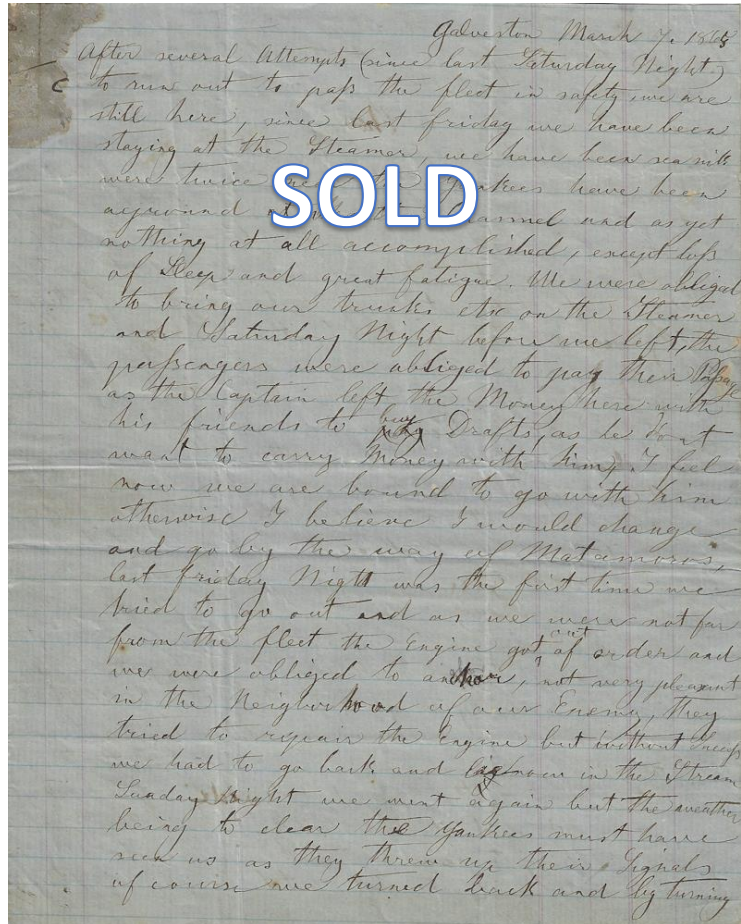 Galveston March 7. 1865
After several Attempts (since last Saturday Night)
to run out to paſs the fleet in safety, we are
still here, since last friday we have been
staying at the Steamer, we have been sea sick
were twice Yankees have been
aground channel and as yet
nothing at all accomplished, except loſs
of Sleep and great fatigue. We were obliged
to bring our trunks etc on the Steamer
and Saturday Night before we left, the
paſsengers were obliged to pay their Paſsage
as the Captain left the Money here with
his friends to buy Drafts, as he dont
want to carry Money with him, I feel
now we are bound to go with him
otherwise I believe I would change
and go by the way of Matamoros,
last friday Night was the first time we
tried to go out and as we were not far
from the fleet the Engine got out of order and
we were obliged to anchor, not very pleasant
in the Neighborhood of our Enemy, they
tried to repair the Engine but without Succeſs
we had to go back and in the Stream
Sunday Night we went again but the weather
being to clear the Yankees must have
seen us as they threw up their Signals
of course we turned back and by turning
SOLD